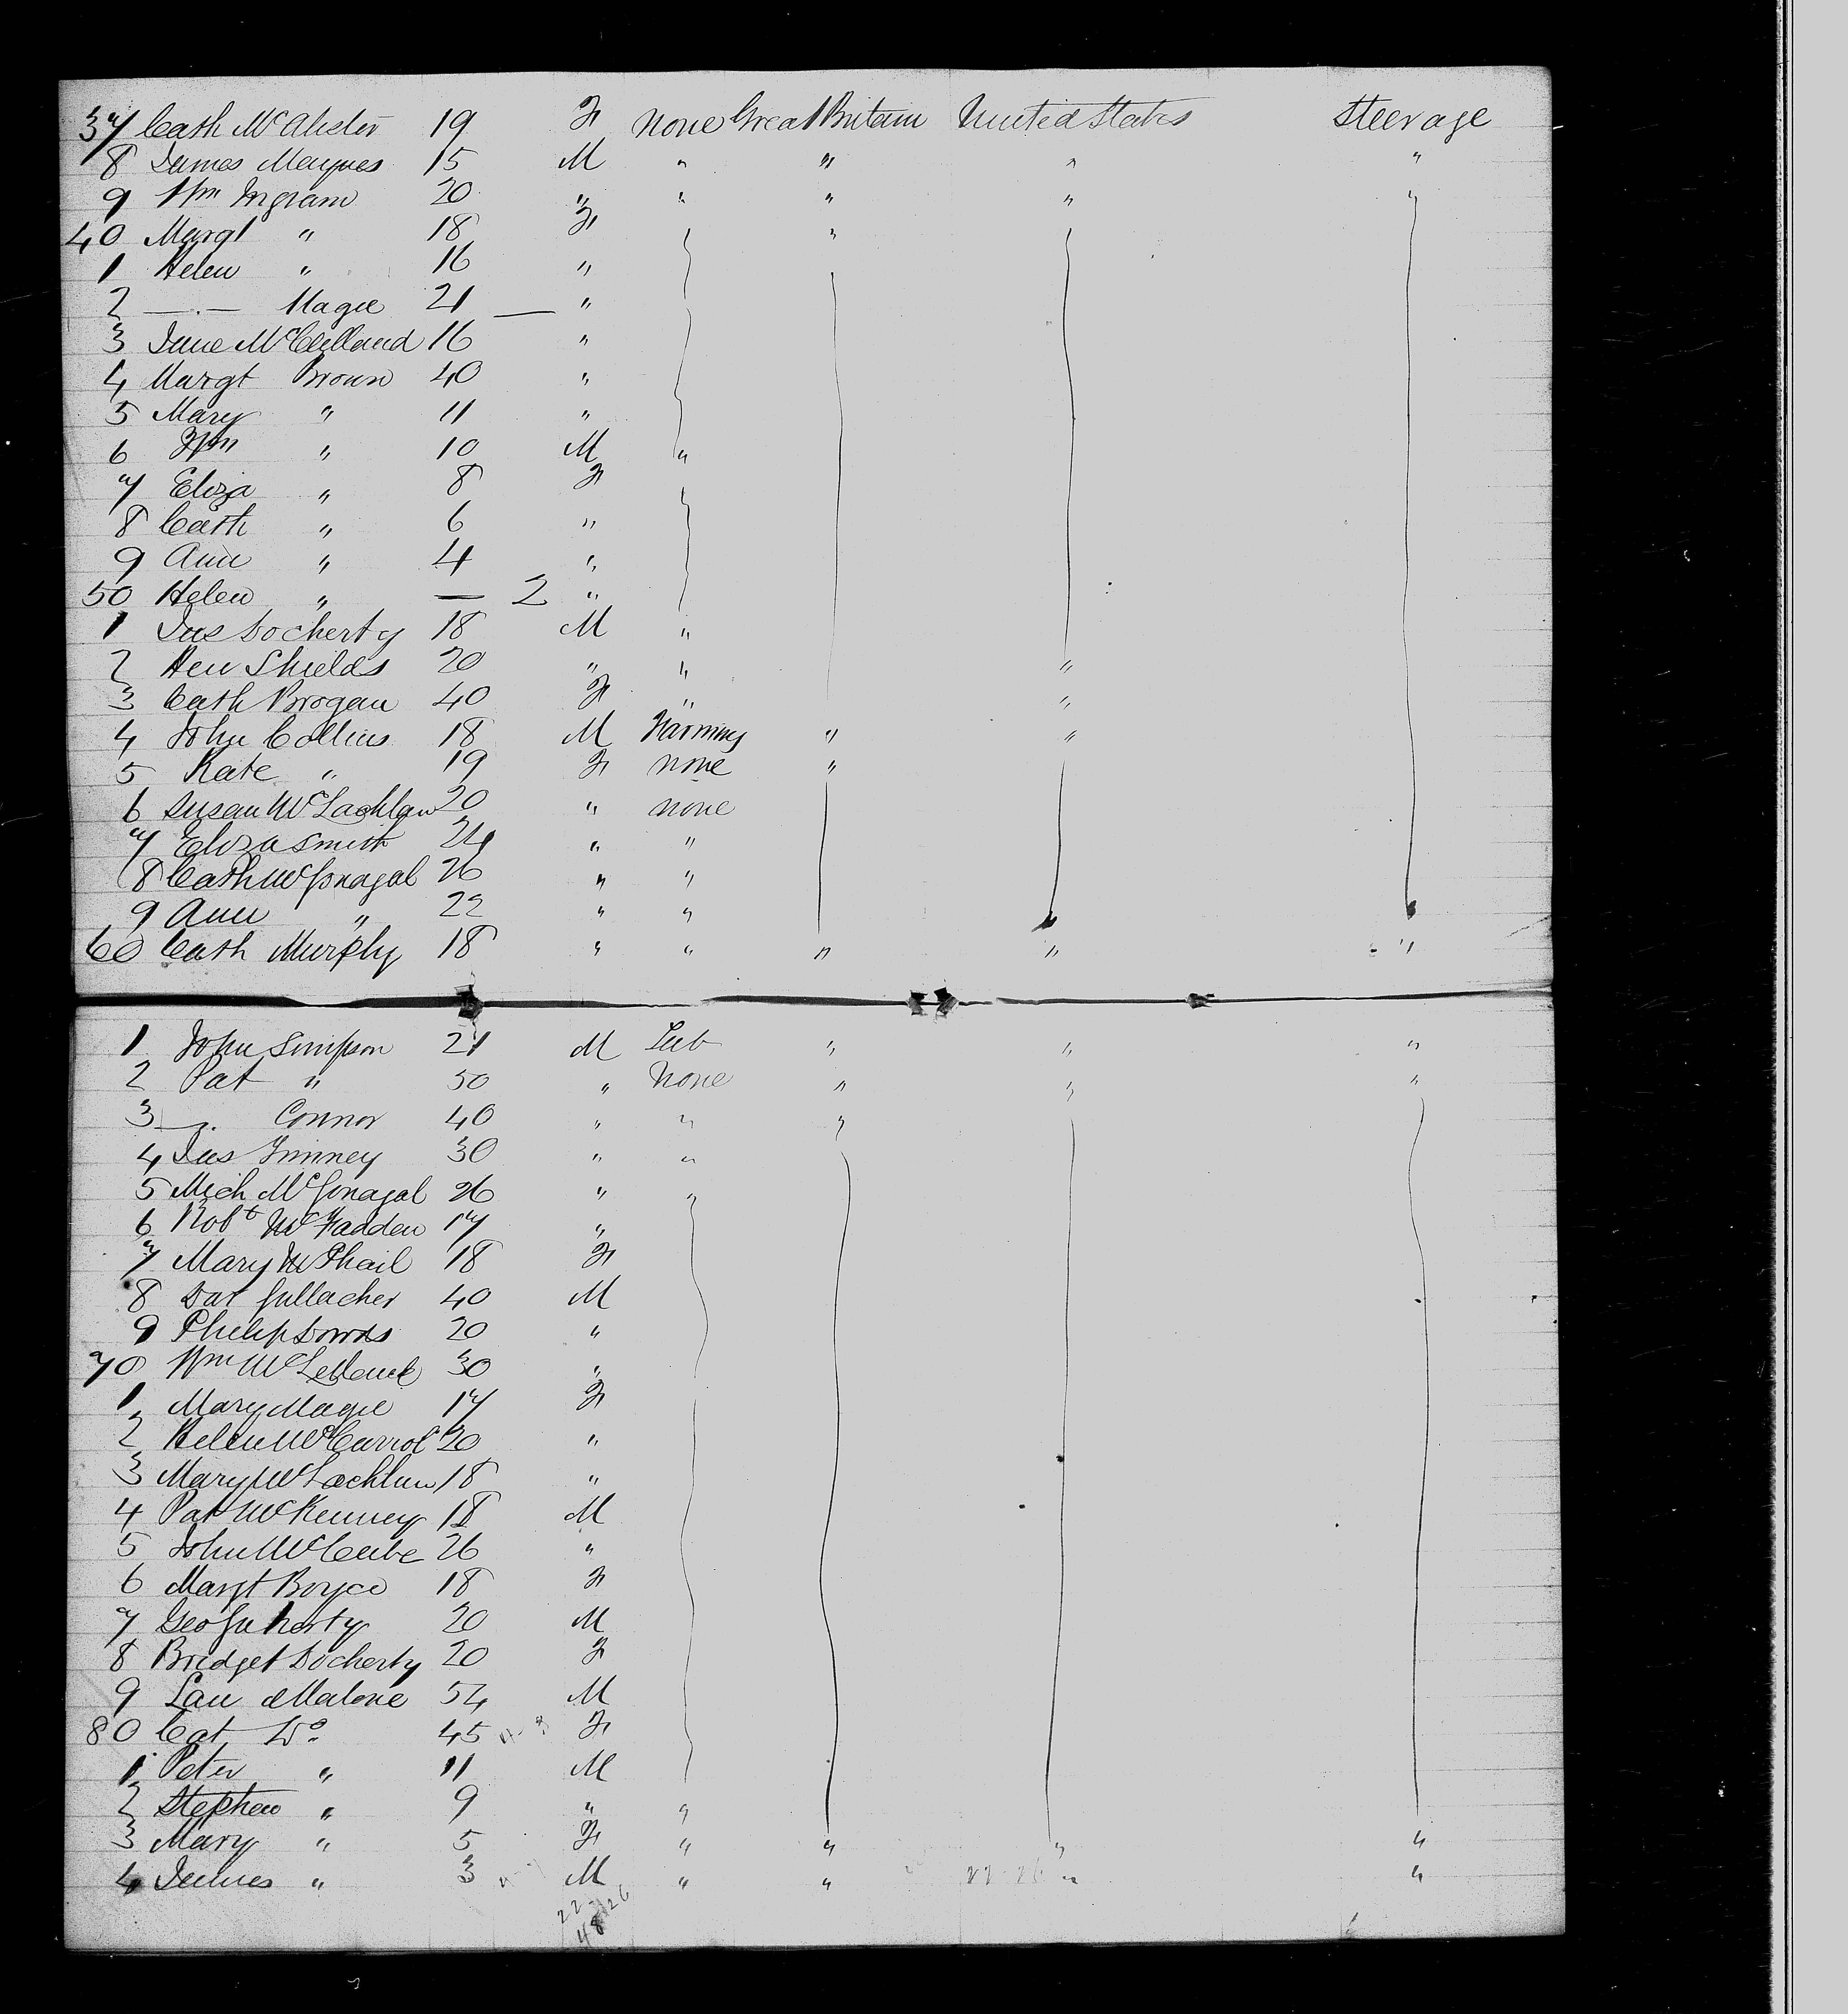 37 Cath McAlister 19 F None Great Britain United States Steerage
8 James Maynes 15 M " " " "
9 Wm Ingram 20 " " " " "
40 Margt " 18 F "
1 Helen " 16 "
2 —.— Magee 21 — "
3 Jane McClelland 16 "
4 Margt Brown 40 "
5 Mary " 11 "
6 Wm " 10 M "
7 Eliza " 8 F
8 Cath " 6 "
9 Ann " 4 "
50 Helen " — 2 "
1 Jas Docherty 18 M "
2 Hen Shields 20 " " "
3 Cath Brogan 40 F " "
4 John Collins 18 M Farming " "
5 Kate " 19 F none "
6 Susan McLachlan 20 " none
7 Eliza Smith 24 " "
8 Cath McGonagal 26 " "
9 Ann " 22 " "
60 Cath Murphy 18 " " " " "
1 John Simpson 21 M Lab " " "
2 Pat " 50 " None " " "
3 —. Connor 40 " " "
4 Jas Finney 30 " "
5 Mich McGonagal 26 " "
6 Robt McFadden 17 "
7 Mary McPhail 18 F
8 Dar Gallacher 40 M
9 Philip Dowds 20 "
70 Wm McLelland 30 "
1 Mary Magee 17 F
2 Helen McCarrol 20 "
3 Mary McLachlan 18 "
4 Pat McKenney 18 M
5 John McCabe 26 "
6 Margt Boyce 18 F
7 Geo Gaherty 20 M
8 Bridget Docherty 20 F
9 Lau Malone 54 M
80 Cat Do 45 F
1 Peter " 11 M
2 Stephen " 9 " "
3 Mary " 5 F " " " "
4 James " 3 M " " 22-26 " "
22-26
48